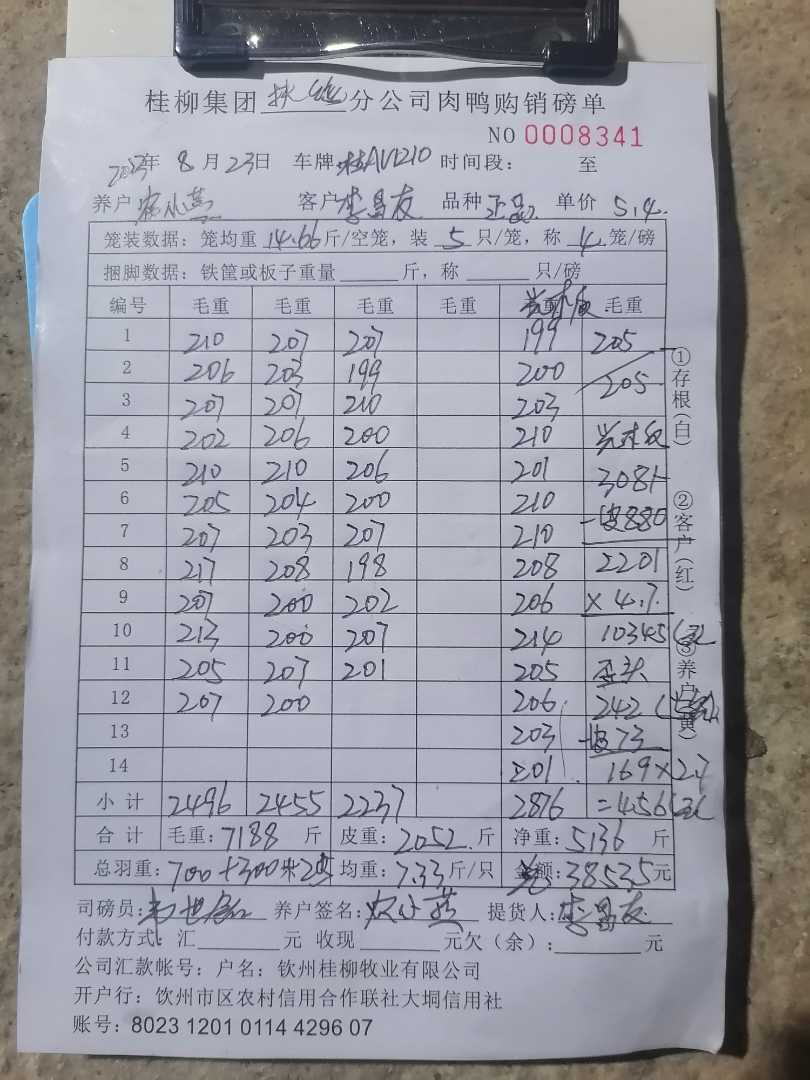 桂柳集团 分公司肉鸭购销磅单
NO 0008341
年 8 月 23 日 车牌: 桂AV1210 时间段: 至
养户 客户 李昌友 品种 正品 单价 5.4
笼装数据: 笼均重 14.66 斤/空笼, 装 5 只/笼, 称 4 笼/磅
捆脚数据: 铁筐或板子重量 斤, 称 只/磅
编号 毛重 毛重 毛重 毛重 毛重
1 210 207 207 199 205
2 206 203 199 200 205
3 207 207 210 203
4 202 206 200 210
5 210 210 206 201 3081
6 205 204 200 210 -皮880
7 207 203 207 210
8 217 208 198 208 2201
9 207 200 202 206 × 4.7
10 213 200 207 214 10345
11 205 207 201 205
12 207 200 206 242
13 203 -皮73
14 201 169×2.7
小计 2496 2455 2237 2876 =456
合计 毛重: 7188 斤 皮重: 2052 斤 净重: 5136 斤
总羽重: 700+300 均重: 7.33 斤/只 金额: 38535 元
司磅员: 养户签名: 提货人: 李昌友
付款方式: 汇 元 收现 元欠(余): 元
公司汇款帐号: 户名: 钦州桂柳牧业有限公司
开户行: 饮州市区农村信用合作联社大垌信用社
账号: 8023 1201 0114 4296 07
①存根(白)
②客户(红)
③养户(黄)